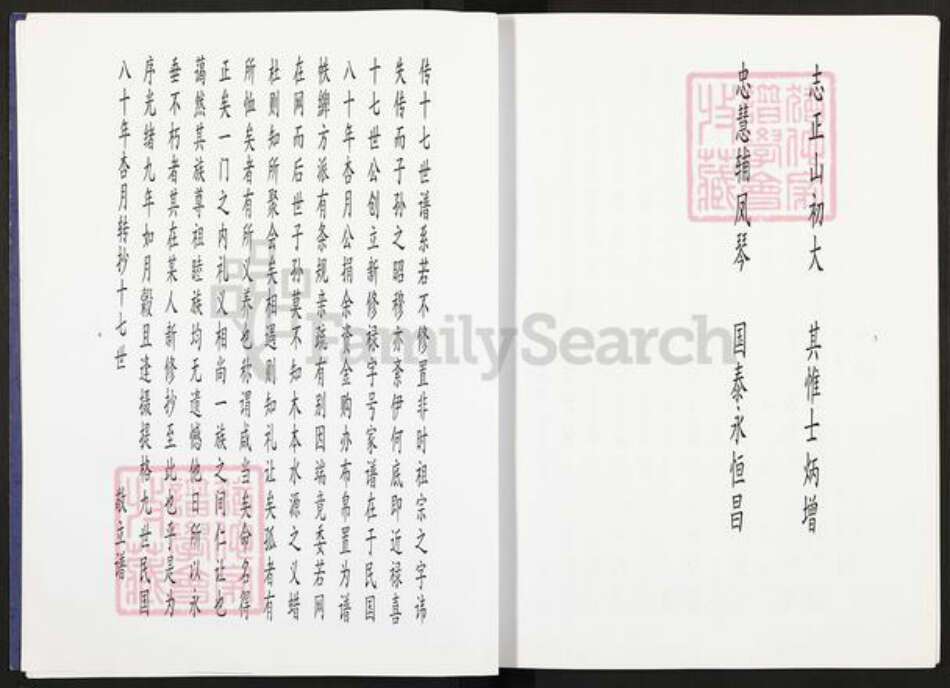 志正山初大 其惟士炳增
忠慧辅凤琴 国泰永恒昌
传十七世谱系若不修置非时祖宗之字讳
失传而子孙之昭穆亦紊伊何底即近禄喜
十七世公创立新修禄字号家谱在于民国
八十年杏月公捐余资金购办布帛置为谱
帙绵方派有条规亲疏有别因端竟委若网
在网而后世子孙莫不知木本水源之义蜡
社则知所聚会矣相遇则知礼让矣孤者有
所恤矣者有所义养也称谓咸当矣命名得
正矣一门之内礼义相尚一族之间仁让也
蔼然其族尊祖睦族均无遗憾他日所以永
垂不朽者其在某人新修抄至此也乎是为
序光绪九年如月穀旦逢摄提格九世民国
八十年杏月转抄十七世 敬立谱
FamilySearch